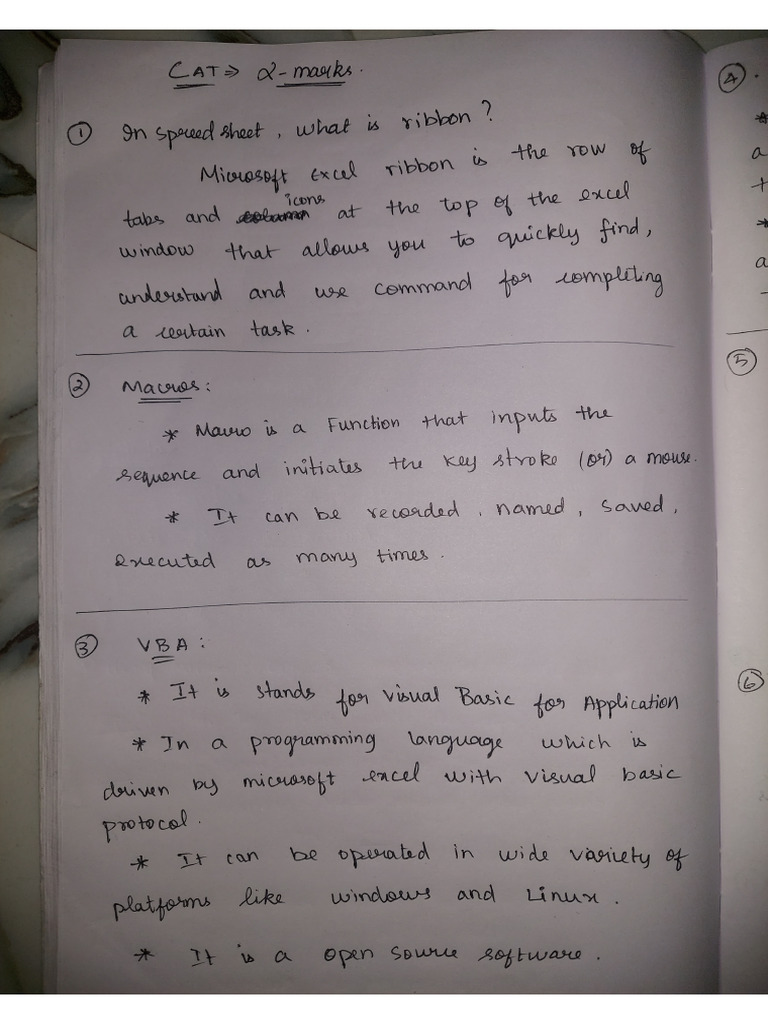 CAT ⇒ 2-marks.
① In spreed sheet, what is ribbon?
Microsoft Excel ribbon is the row of
icons
tabs and at the top of the excel
window that allows you to quickly find,
understand and use command for completing
a certain task.
② Macros:
* Macro is a Function that inputs the
sequence and initiates the key stroke (or) a mouse.
* It can be recorded, named, saved,
executed as many times.
③ VBA:
* It is stands for Visual Basic for Application
* In a programming language which is
driven by microsoft excel with visual basic
protocol.
* It can be operated in wide variety of
platforms like windows and Linux.
* It is a open source software.
④.
*
a
t
*
a
⑤
⑥